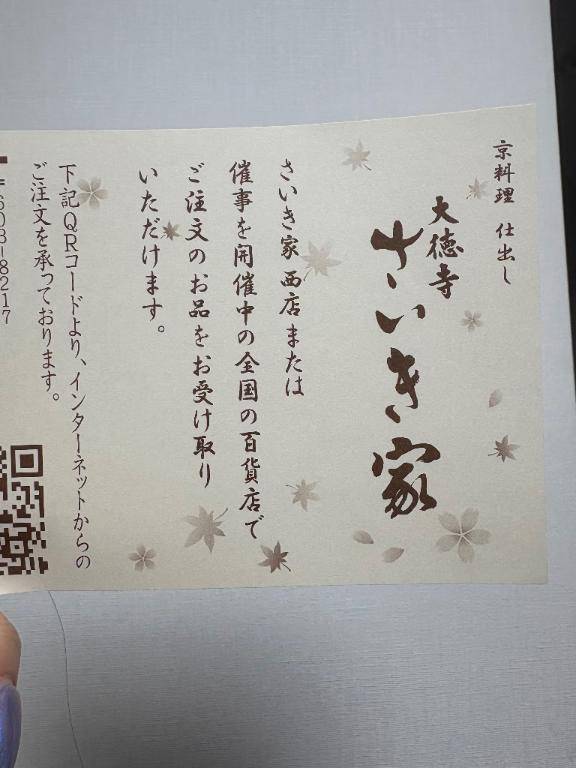 京料理 仕出し
大徳寺
さいき家
さいき家 西店または
催事を開催中の全国の百貨店で
ご注文のお品をお受け取り
いただけます。
下記QRコードより、インターネットからの
ご注文を承っております。
603-8217